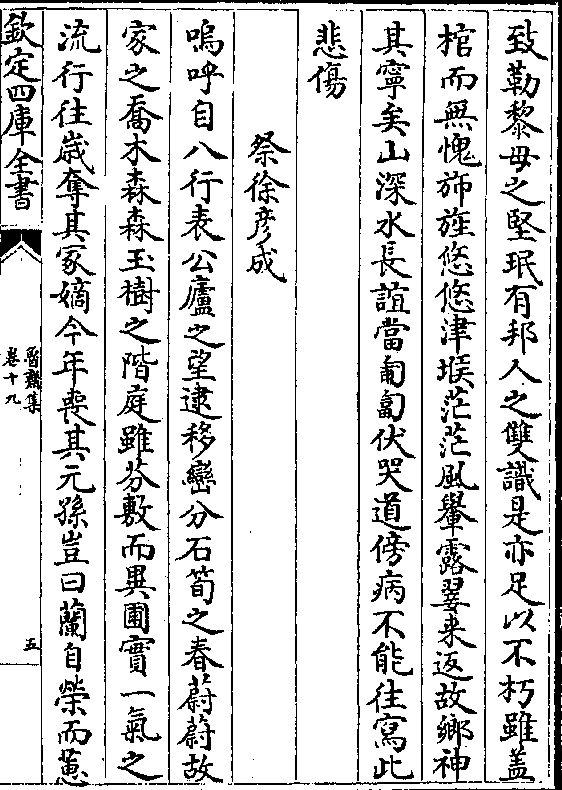 致勒黎母之堅珉有邦人之雙識是亦足以不朽雖盖
棺而無愧斾旌悠悠津堠茫茫風轝露翣来返故鄉神
其寧矣山深水長誼當匍匐伏哭道傍病不能往寫此
悲傷
祭徐彦成
嗚呼自八行表公廬之望逮移巒分石筍之春蔚蔚故
家之喬木森森玉樹之階庭雖芬敷而異圃實一氣之
流行往嵗奪其冢嫡今年喪其元孫豈曰蘭自榮而蕙
欽定四庫全書
卷十九
五